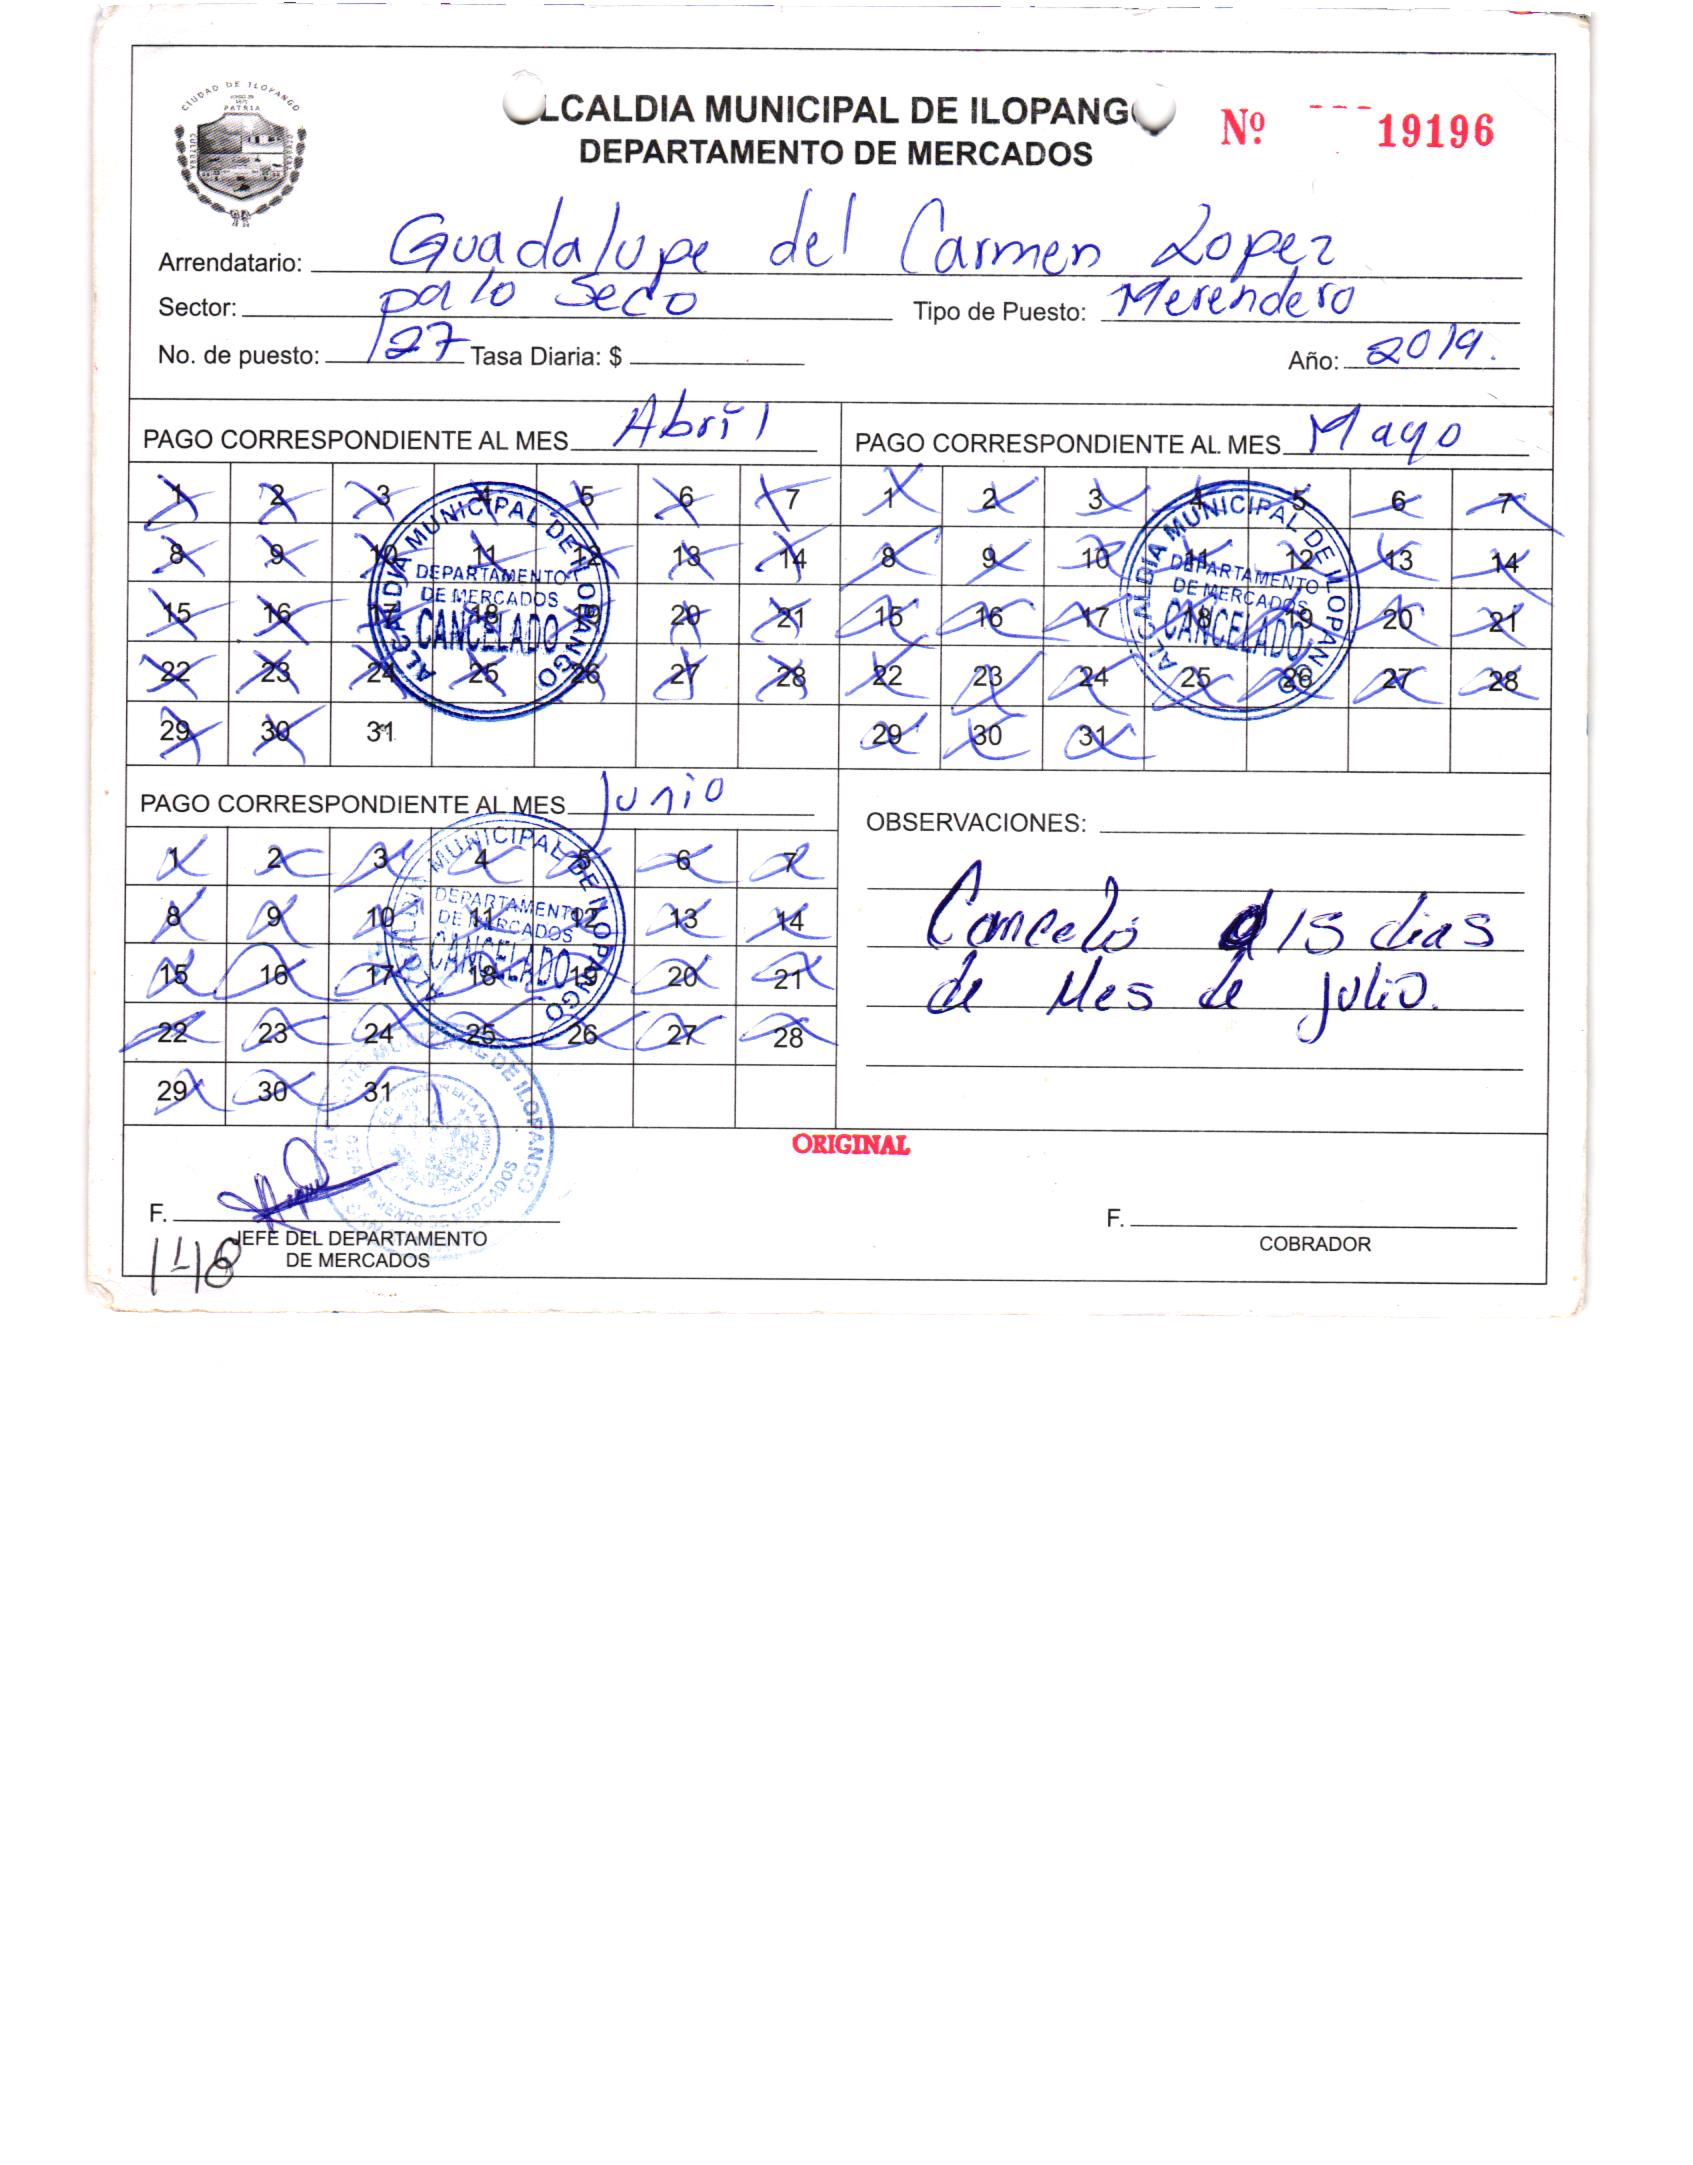 CIUDAD DE ILOPANGO
PATRIA
LCALDIA MUNICIPAL DE ILOPANG
DEPARTAMENTO DE MERCADOS
Nº 19196
Arrendatario: Guadalupe del Carmen Lopez
Sector: palo Seco Tipo de Puesto: Merendero
No. de puesto: 127 Tasa Diaria: $ Año: 2019.
PAGO CORRESPONDIENTE AL MES Abril
1 2 3 4 5 6 7
8 9 10 11 12 13 14
15 16 17 18 19 20 21
22 23 24 25 26 27 28
29 30 31
ALCALDIA MUNICIPAL DE ILOPANGO
DEPARTAMENTO
DE MERCADOS
CANCELADO
PAGO CORRESPONDIENTE AL MES Mayo
1 2 3 4 5 6 7
8 9 10 11 12 13 14
15 16 17 18 19 20 21
22 23 24 25 26 27 28
29 30 31
ALCALDIA MUNICIPAL DE ILOPANGO
DEPARTAMENTO
DE MERCADOS
CANCELADO
PAGO CORRESPONDIENTE AL MES Junio
1 2 3 4 5 6 7
8 9 10 11 12 13 14
15 16 17 18 19 20 21
22 23 24 25 26 27 28
29 30 31
ALCALDIA MUNICIPAL DE ILOPANGO
DEPARTAMENTO
DE MERCADOS
CANCELADO
OBSERVACIONES:
Cancelo 15 dias
de Mes de julio.
ORIGINAL
F.
JEFE DEL DEPARTAMENTO
DE MERCADOS
148
F.
COBRADOR